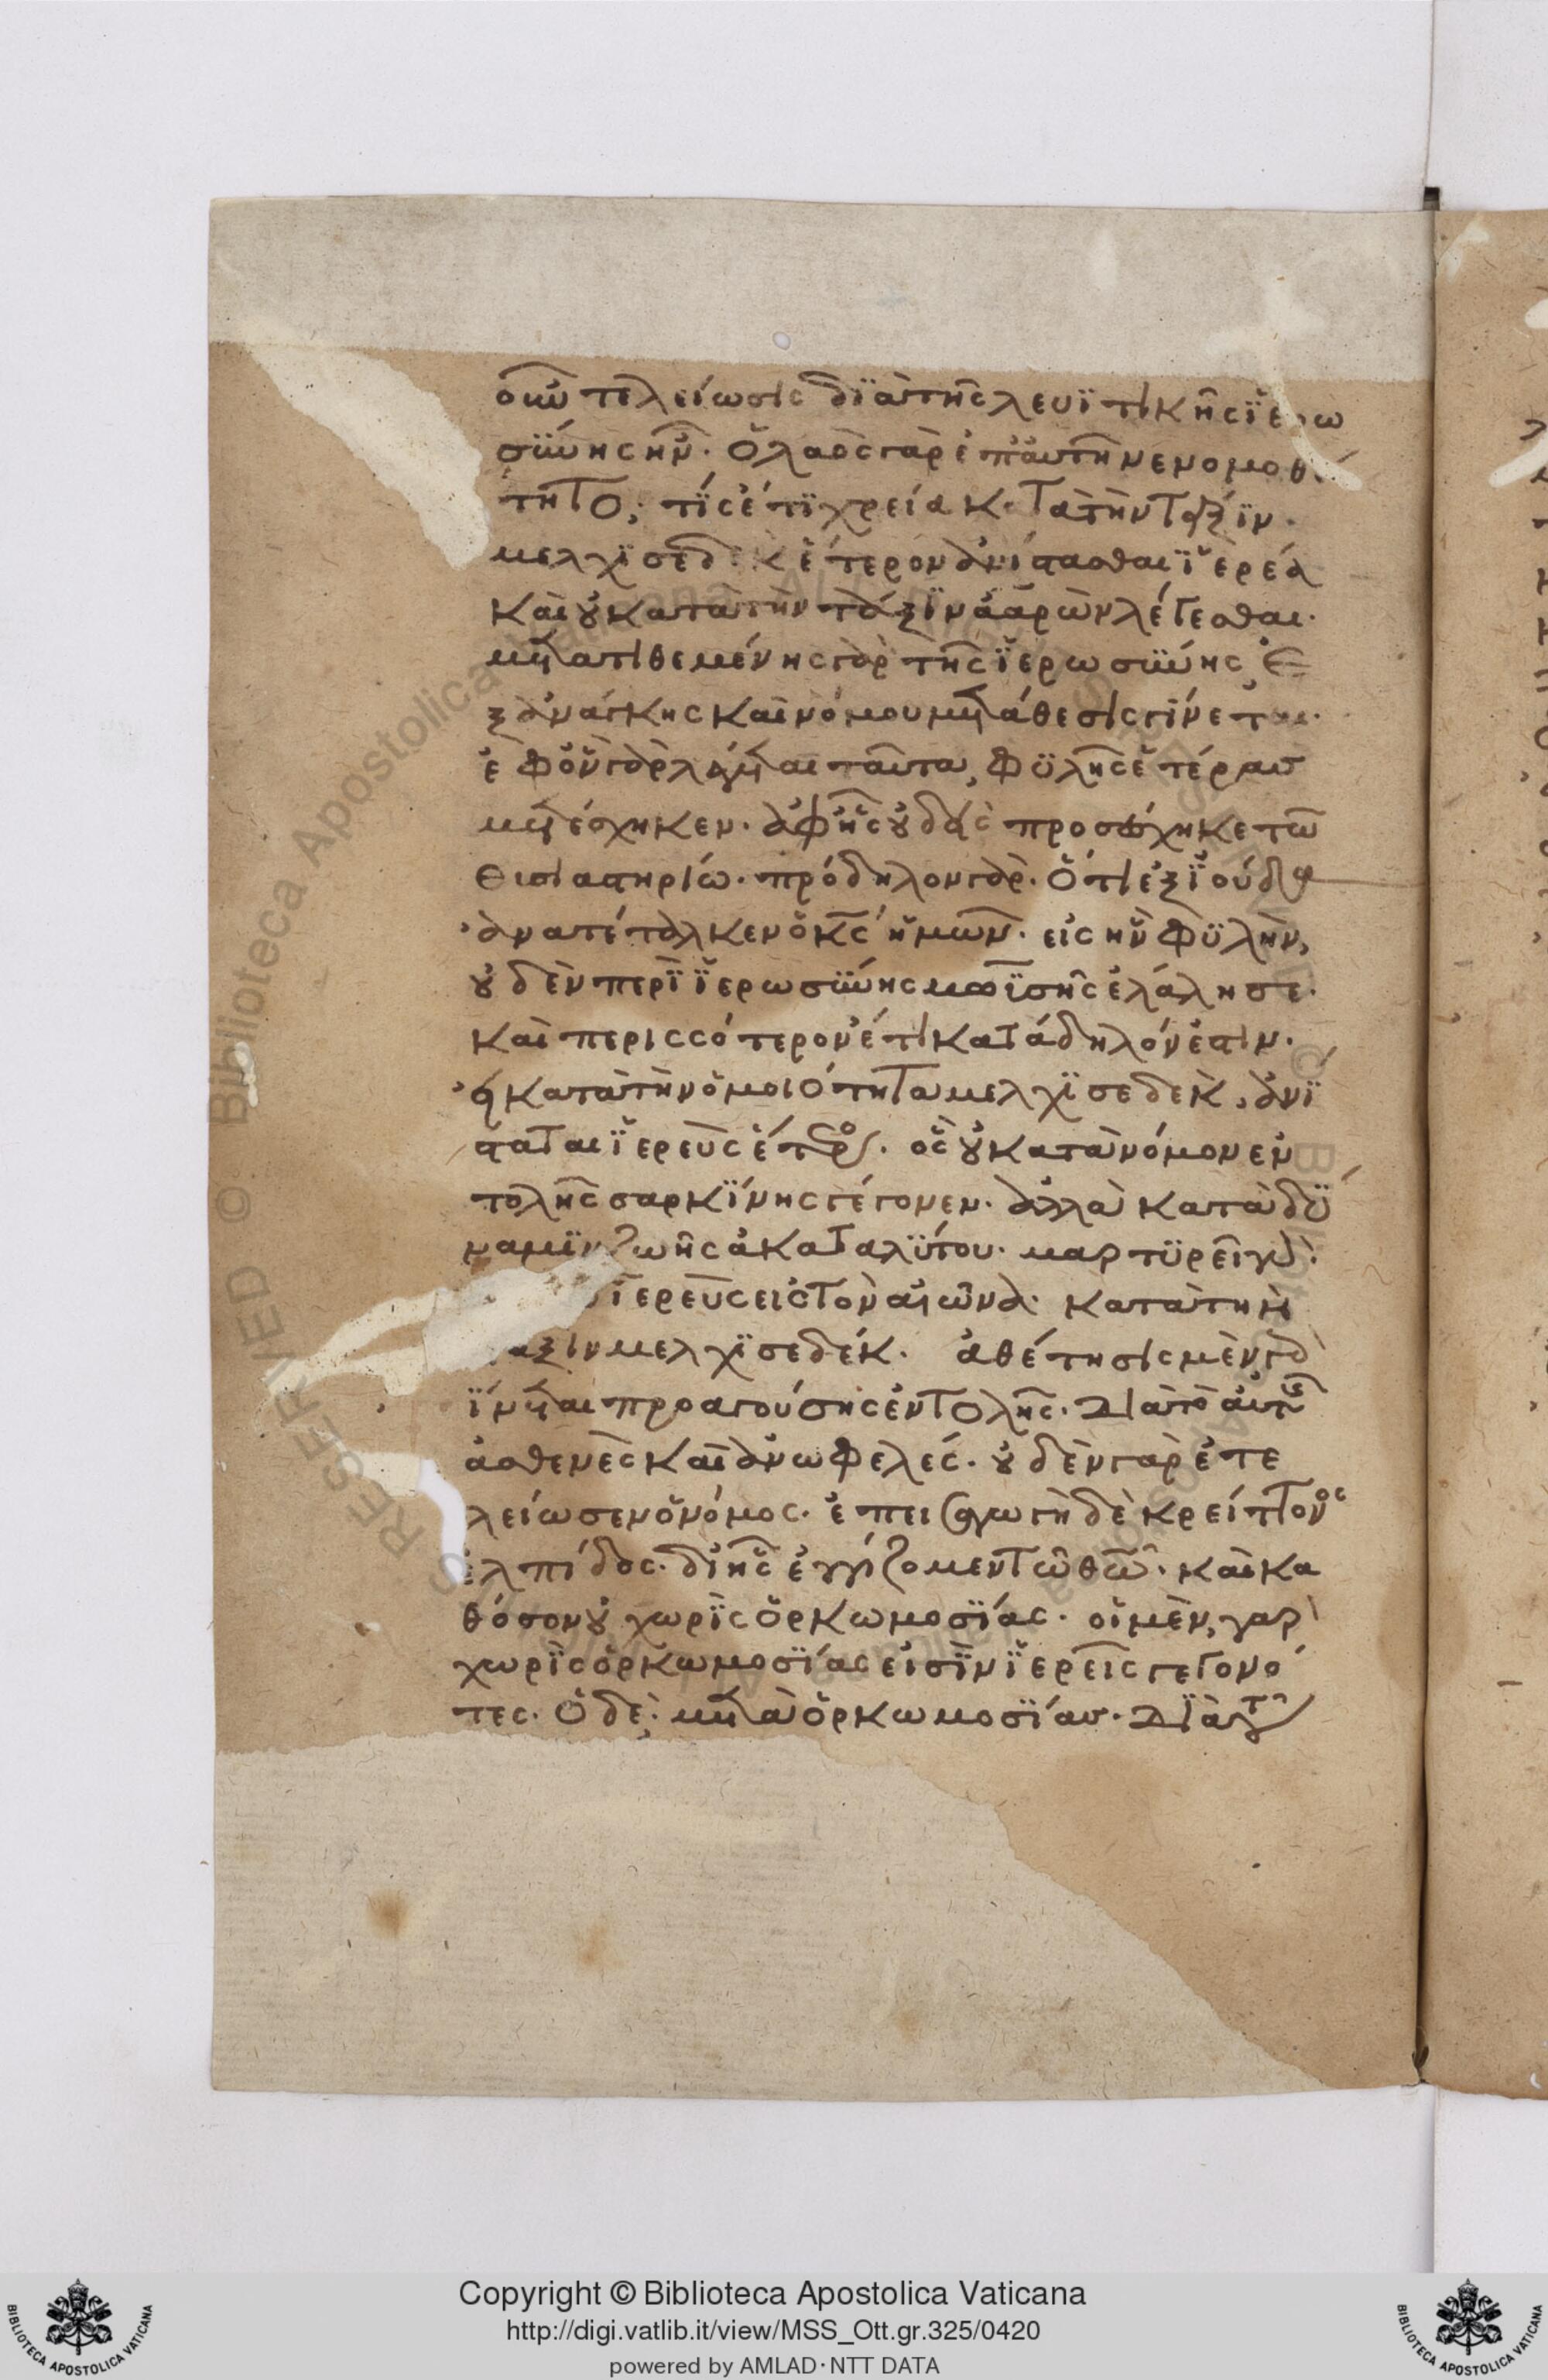 οὖν τελείωσις διὰ τῆς λευϊτικῆς ἱερω
σύνης ἦν· ὁ λαὸς γὰρ ἐπ' αὐτὴν ενομοθε
τητο, τίς ἔτι χρεία κατὰ τὴν τάξϊν·
μελχϊσεδὲκ ἕτερον ἀνίστασθαι ϊερέα
καὶ οὐ κατὰ τὴν τάξϊν ἀαρὼν λέγεσθαι·
μετατιθεμένης γὰρ τῆς ϊερωσύνης, ἐ
ξ ἀνάγκης καὶ νόμου μετάθεσις γίνεται·
ἐφ' ὃν γὰρ λέγεται ταῦτα, φϋλῆς ἑτέρας
μετέσχηκεν· ἀφ' ἧς οὐδεὶς προσέσχηκε τῶ
θισιαστηρίω· πρόδηλον γὰρ· ὅτι ἐξ ϊούδα
ἀνατέταλκεν ὁ κς ἡμῶν· εἰς ἣν φϋλὴν,
οὐδὲν περὶ ϊερωσύνης μωϊσῆς ἐλάλησε·
καὶ περισσότερον ἔτι κατάδηλόν ἐστιν·
εἰ κατὰ τὴν ὁμοιότητα μελχϊσεδὲκ, ἀνϊ
σταται ϊερεὺς ἕτερος· ὃς οὐ κατὰ νόμον ἐν
τολῆς σαρκίνης γέγονεν· ἀλλὰ κατὰ δϋ
ναμϊν ζωῆς ἀκαταλϋτου· μαρτϋρεῖ γὰρ·
ϊερεὺς εἰς τὸν αἰῶνα· κατὰ τὴν
ταξιν μελχϊσεδέκ· ἀθέτησις μὲν γὰρ
γίνεται προαγούσης ἐντολῆς· διὰ τὸ αὐτῆς
ἀσθενὲς καὶ ἀνωφελές· οὐδὲν γὰρ ἐτε
λείωσεν ὁ νόμος· ἐπεισαγωγὴ δὲ κρείττονος
ἐλπίδος· δι' ἧς ἐγγίζομεν τῶ θῶ· καὶ κα
θόσον οὐ χωρὶς ὁρκωμοσϊας· οἱ μὲν, γὰρ
χωρὶς ὁρκωμοσϊας εἰσὶν ϊερεῖς γεγονό
τες· ὁ δὲ, μετὰ ὁρκωμοσϊας· διὰ τοῦ
Copyright © Biblioteca Apostolica Vaticana
http://digi.vatlib.it/view/MSS_Ott.gr.325/0420
powered by AMLAD·NTT DATA